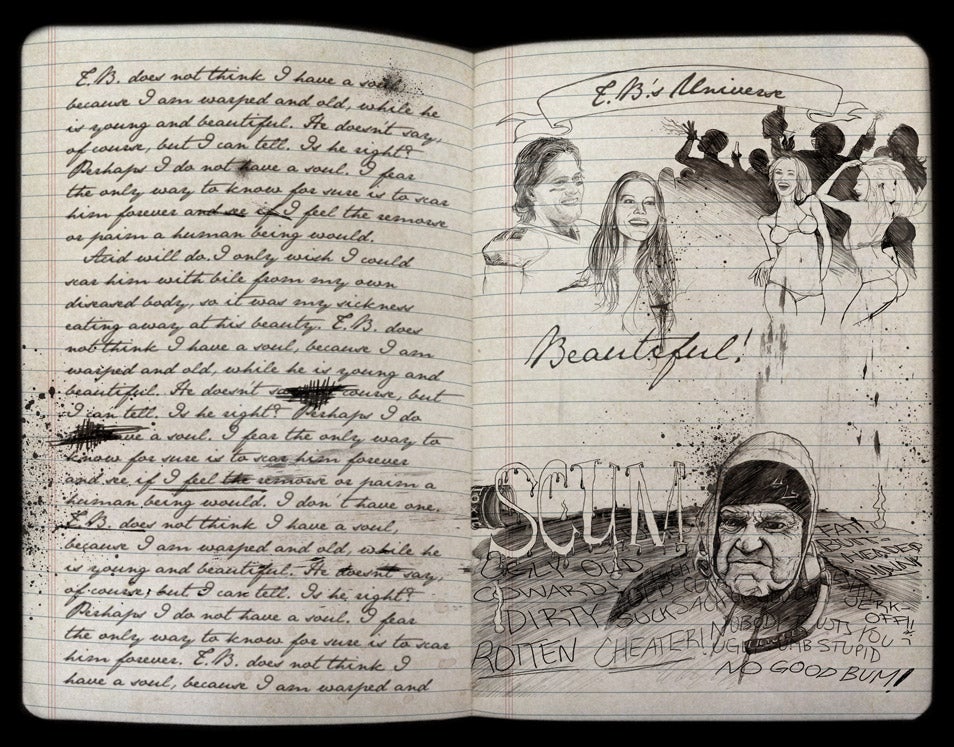 T.B. does not think I have a soul
because I am warped and old, while he
is young and beautiful. He doesn't say,
of course, but I can tell. Is he right?
Perhaps I do not have a soul. I fear
the only way to know for sure is to scar
him forever and see if I feel the remorse
or paim a human being would.
And will do. I only wish I could
scar him with bile from my own
diseased body, so it was my sickness
eating away at his beauty. T.B. does
not think I have a soul, because I am
warped and old, while he is young and
beautiful. He doesn't course, but
I can tell. Is he right? Perhaps I do
a soul. I fear the only way to
know for sure is to scar him forever
and see if I feel the remorse or paim a
human being would. I don't have one.
T.B. does not think I have a soul,
because I am warped and old, while he
is young and beautiful. He doesn't say,
of course, but I can tell. Is he right?
Perhaps I do not have a soul. I fear
the only way to know for sure is to scar
him forever. T.B. does not think I
have a soul, because I am warped and
T.B.'s Universe
Beauteful!
SCUM
UGLY OLD
COWARD
DIRTY
SUCK
ROTTEN CHEATER!
FAT!
BUTT-
HEADED
JERK-
OFF!!
NOBODY YOU
UGLY DUMB STUPID
NO GOOD BUM!!